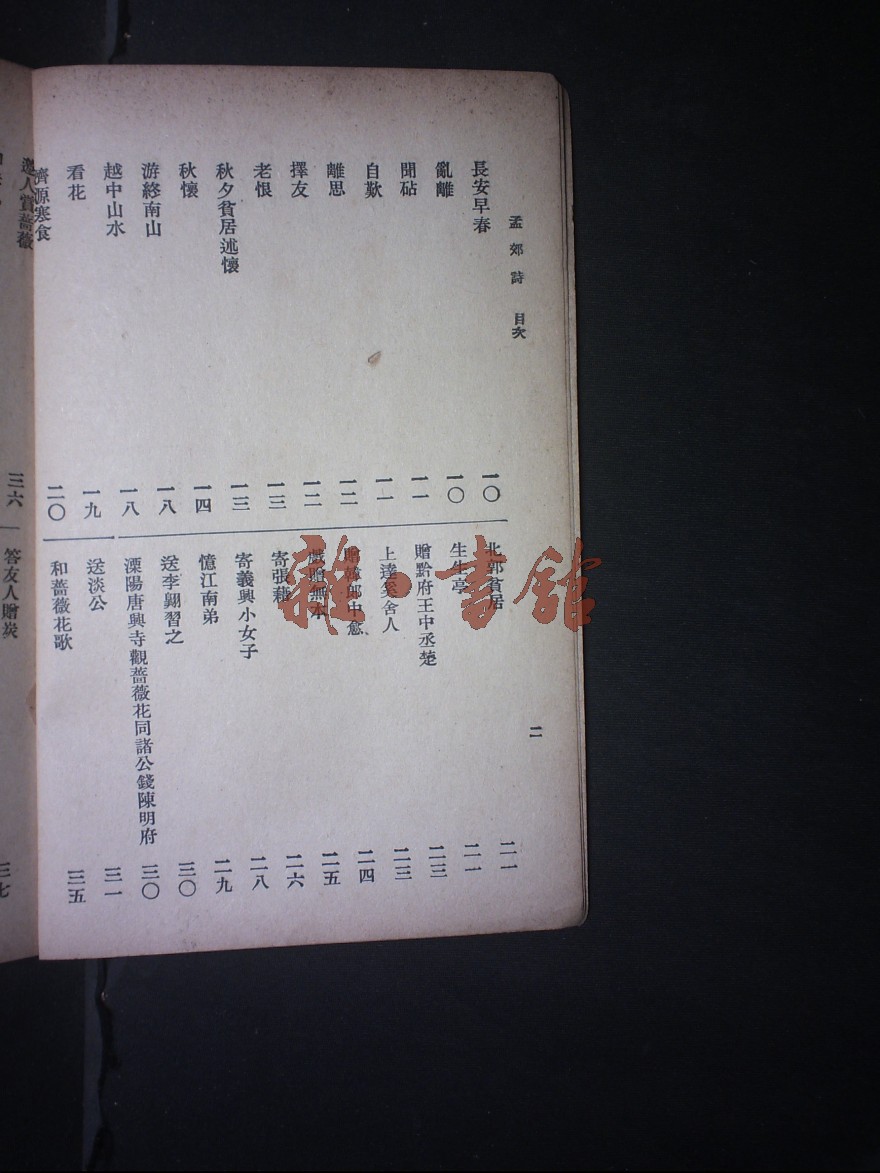 孟郊詩 目次
二
長安早春 一〇
亂離 一〇
聞砧 一一
自歎 一一
離思 一二
擇友 一二
老恨 一三
秋夕貧居述懷 一三
秋懷 一四
游終南山 一八
越中山水 一八
看花 一九
濟源寒食 二〇
北郭貧居 二一
生生亭 二一
贈黔府王中丞楚 二三
上達奚舍人 二三
贈韓郎中愈 二四
戲贈無本 二五
寄張籍 二六
寄義興小女子 二八
憶江南弟 二九
送李翺習之 三〇
溧陽唐興寺觀薔薇花同諸公餞陳明府 三〇
送淡公 三一
和薔薇花歌 三五
邀人賞薔薇 三六
答友人贈炭 三七
雜·書館